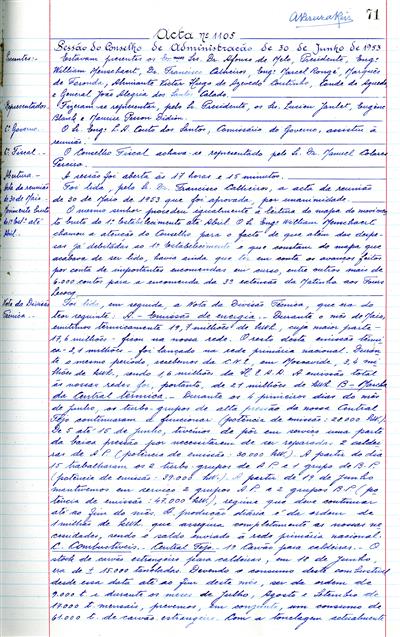 71
Acta nº 1105
Sessão do Conselho de Administração de 30 de Junho de 1953
Presentes: Estavam presentes os Exmos Srs. Dr. Afonso de Melo, Presidente, Engº
William Menschaert, Dr. Francisco Calheiros, Engº Marcel Rongé, Marquês
de Fronda, Almirante Victor Hugo de Azevedo Coutinho, Conde de Agueda
e General João Alegria dos Santos Calado.
Representados Fizeram-se representar, pelo Sr. Presidente, os Srs. Lucien Janlet, Eugène
e Maurice
Cº Governo. O Sr. Engº L. A. Couto dos Santos, Comissário do Governo, assistiu á
reunião.
Cº Fiscal. O Conselho Fiscal achava-se representado pelo Sr. Dr. Manuel Colares
Pereira.
Abertura A sessão foi aberta ás 17 horas e 15 minutos.
Acta da reunião Foi lida, pelo Sr. Dr. Francisco Calheiros, a acta da reunião
de 30 de Maio de 1953 que foi aprovada, por unanimidade.
Movimento O mesmo senhor procedeu egualmente á leitura do mapa do movimen-
to de 1º Estabelecimento até Abril. O Sr. Engº William Menschaert
chamou a atenção do Conselho para o facto de que alem das despe-
zas já debitadas ao 1º Estabelecimento e que constam do mapa que
acabava de ser lido, havia ainda que ter em conta os avanços feitos
por conta de importantes encomendas em curso, entre outros mais de
6.000 contos para a encomenda da 3ª extensão da Matinha aos Fours
Lecocq.
Nota da Divisão Foi lida, em seguida, a Nota da Divisão Técnica, que era do
Técnica. teor seguinte: A - Emissão de energia. - Durante o mês de Maio,
emitimos térmicamente 19,7 milhões de kWh, cuja maior parte -
17,6 milhões - ficou na nossa rede. O resto desta emissão térmi-
ca - 2,1 milhões - foi lançado na rede primária nacional. Duran-
te o mesmo período, recebemos da C.N.E., em Sacavém, 9,6 mi-
lhões de kWh, sendo 9,6 milhões da H.E.A.A. A emissão total
ás nossas redes foi, portanto, de 27 milhões de kWh. B - Marcha
da Central térmica. - Durante os 4 primeiros dias do mês
de Junho, os turbo-grupos de alta pressão da nossa Central
Tejo continuaram a funcionar (potência de emissão: 27.000 kW).
De 5 até 15 de Junho, tivemos de pôr em serviço uma parte
da baixa pressão por necessitarem de ser reparadas 2 caldei-
ras de A.P. (potência de emissão: 30.000 kW). A partir do dia
15 trabalharam os 2 turbo-grupos de A.P. e 1 grupo de B.P.
(potência de emissão: 39.000 kW). A partir de 19 de Junho
mantivemos em serviço 2 grupos A.P. e 2 grupos B.P. (po-
tência de emissão: 47.000 kW), regime que deve continuar
até ao fim do mês. A produção diária é da ordem de
1 milhão de kWh, que assegura completamente as nossas ne-
cessidades, sendo o saldo enviado á rede primária nacional.
C - Combustíveis. Central Tejo. - 1) Carvão para caldeiras. - O
stock de carvão estrangeiro para caldeiras, em 10 de Junho,
era de ± 15.000 toneladas. Devendo o consumo deste combustível
desde essa data até ao fim deste mês, ser da ordem de
9.000 t. e durante os meses de Julho, Agosto e Setembro de
17.000 t. mensais, prevemos, em conjunto, um consumo de
61.000 t. de carvão estrangeiro. Com a tonelagem actualmente